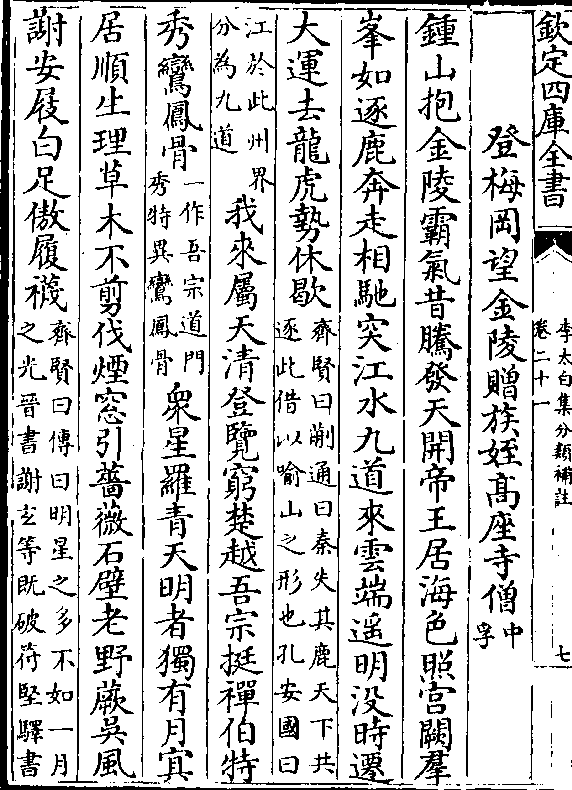 欽定四庫全書
李太白集分類補註
卷二十一
七
登梅岡望金陵贈族姪髙座寺僧中孚
鍾山抱金陵霸氣昔騰發天開帝王居海色照宫闕羣
峯如逐鹿奔走相馳突江水九道來雲端遥明没時遷
大運去龍虎勢休歇齊賢曰蒯通曰秦失其鹿天下共逐此借以喻山之形也孔安國曰
江於此州界分為九道我來屬天清登覽窮楚越吾宗挺禪伯特
秀鸞鳳骨一作吾宗道門秀特異鸞鳳骨衆星羅青天明者獨有月㝠
居順生理草木不剪伐煙窓引薔薇石壁老野蕨吳風
謝安屐白足傲履襪齊賢曰傳曰明星之多不如一月之光晉書謝玄等既破符堅驛書